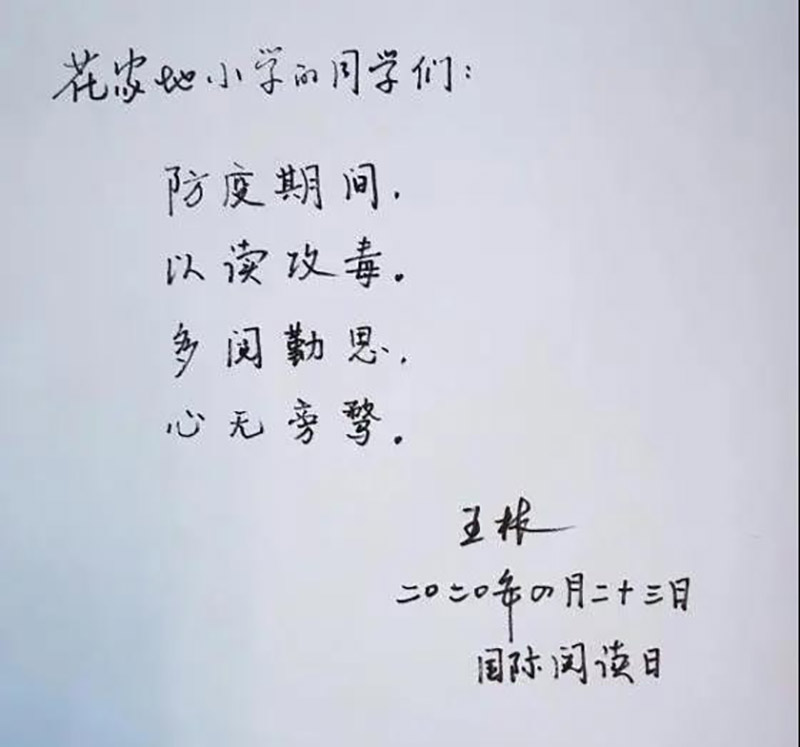 花家地小学的同学们：
防度期间，
以读攻毒。
多阅勤思，
心无旁骛。
王林
二〇二〇年四月二十三日
国际阅读日